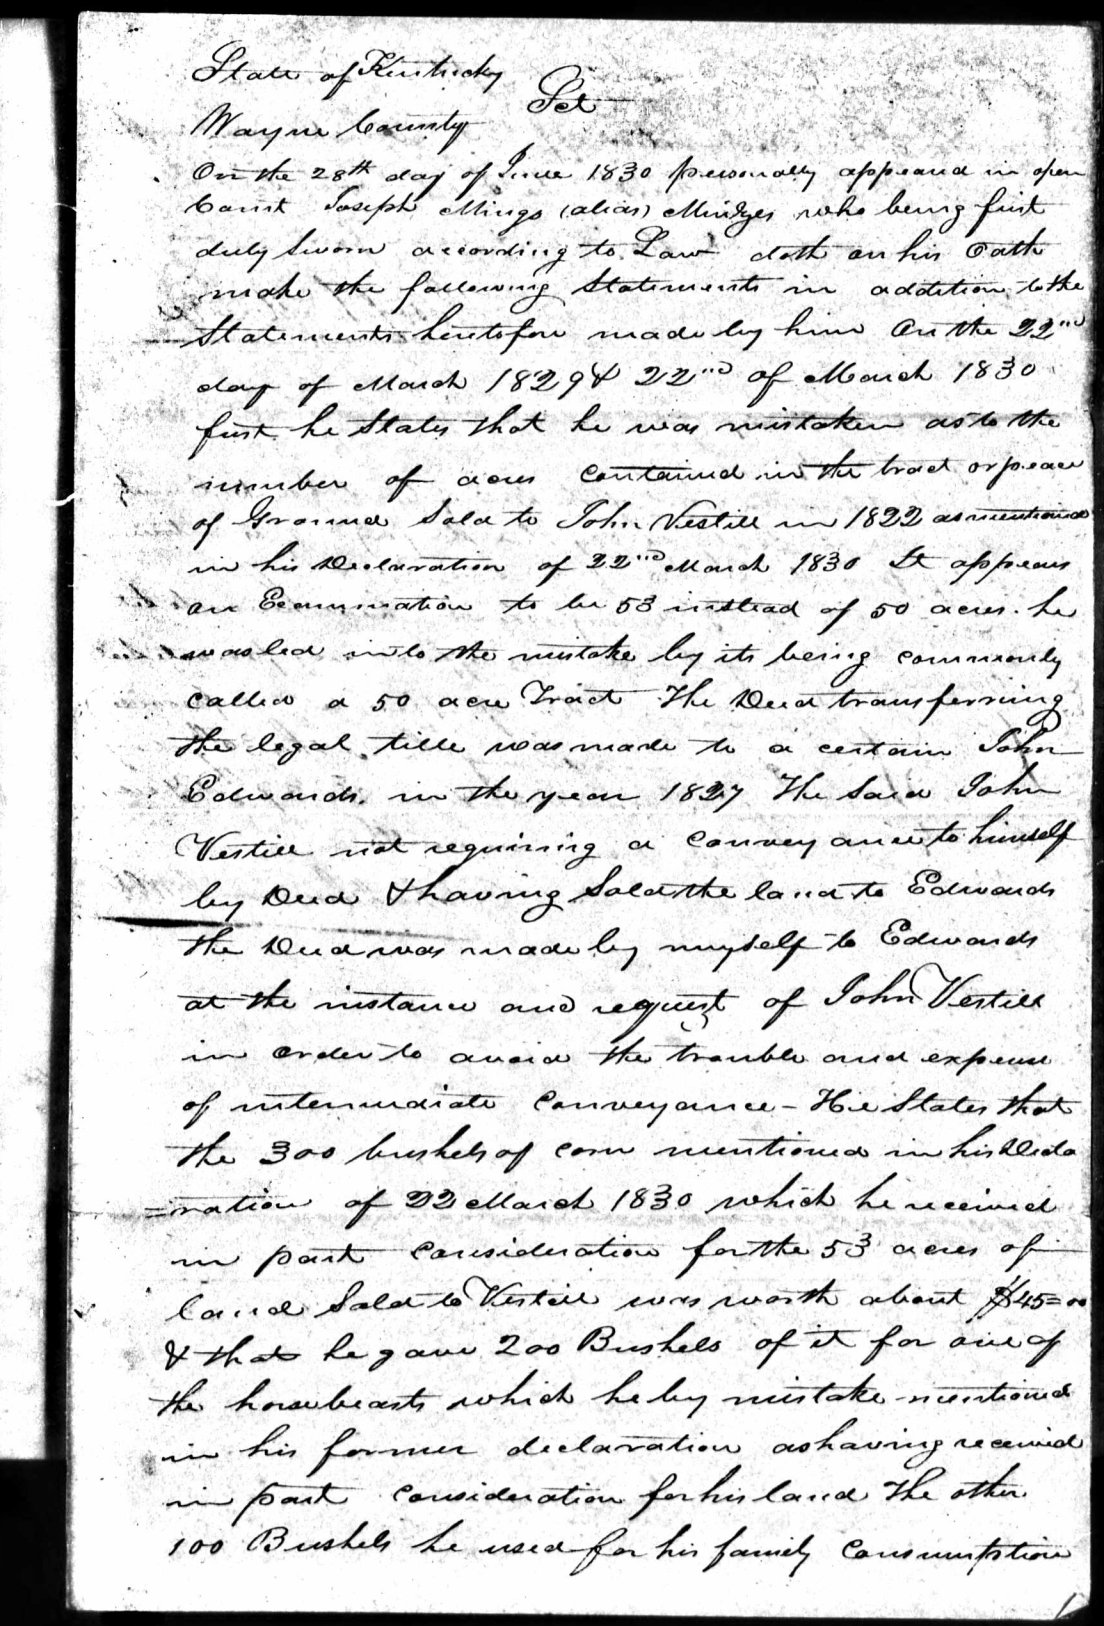 State of Kentucky
Sct
Wayne County
On the 28th day of June 1830 personally appeared in open
Court Joseph Mings (alias) Minzes who being first
duly sworn according to Law doth on his Oath
make the following Statements in addition to the
Statements heretofore made by him On the 22nd
day of March 1829 & 22nd of March 1830
first he States that he was mistaken as to the
number of acres contained in the tract or peace
of Ground Sold to John Vestill in 1822 as mentioned
in his Declaration of 22nd March 1830 It appears
on Examination to be 53 instead of 50 acres. he
was led into the mistake by its being commonly
called a 50 acre Tract The Deed transferring
the legal title was made to a certain John
Edwards. in the year 1827 The Said John
Vestill not requiring a conveyance to himself
by Deed & having Sold the land to Edwards
the Deed was made by myself to Edwards
at the instance and request of John Vestill
in order to avoid the trouble and expense
of intermediate Conveyance - He States that
the 300 bushels of corn mentioned in his Decla
=ration of 22 March 1830 which he received
in part consideration for the 53 acres of
land Sold to Vestill was worth about $45=00
& that he gave 200 Bushels of it for one of
the horsebeasts which he by mistake mentioned
in his former declaration as having received
in part consideration for his land The other
100 Bushels he used for his family Consumption